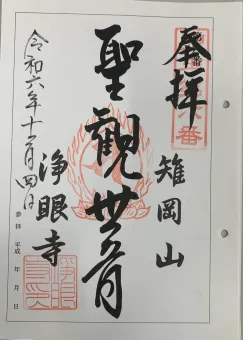 奉拝
雉岡山
聖觀世音
浄眼寺
令和六年十一月四日
参拝 平成 年 月 日